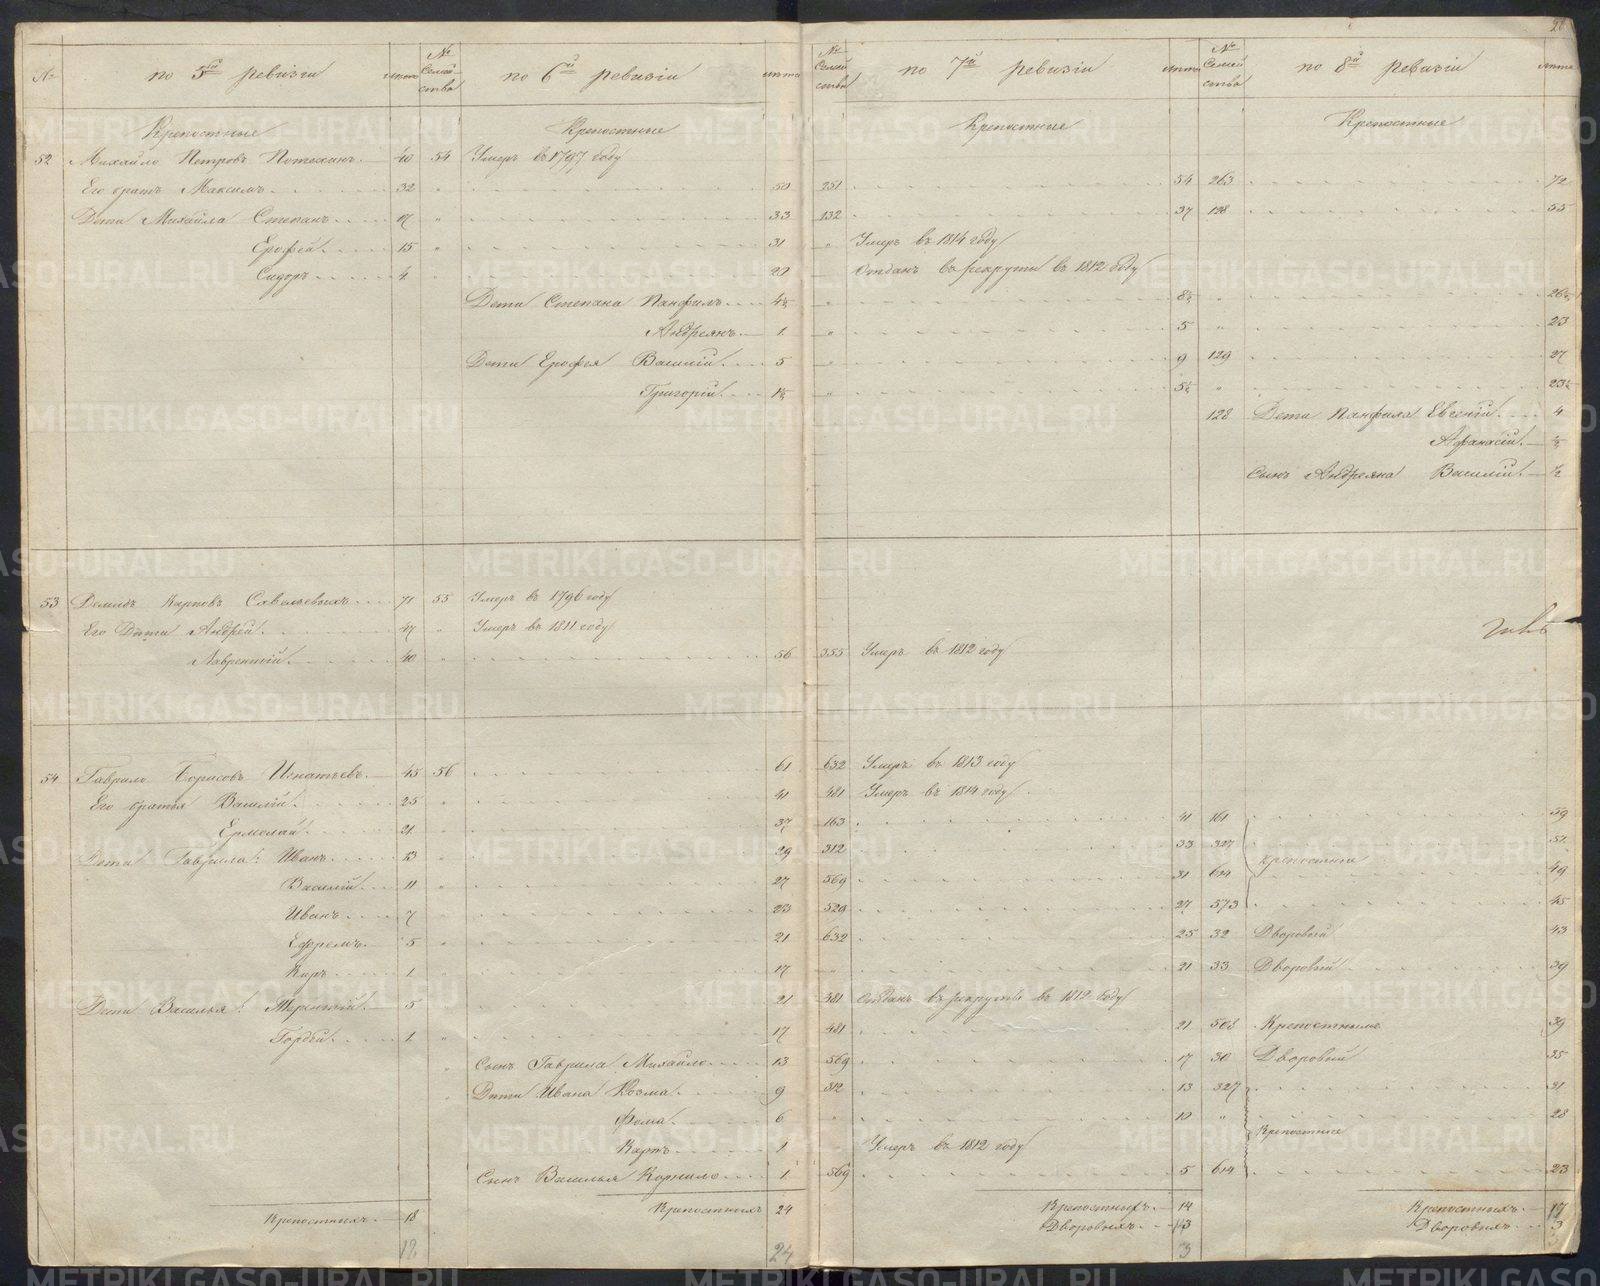 № по 5ой ревизіи лѣта № Семейства по 6й ревизіи лѣта № Семейства по 7й ревизіи лѣта № Семейства по 8й ревизіи лѣта
Крепостные Крепостные Крепостные Крепостные
52 Михайло Петровъ Потехинъ 40 54 Умеръ въ 1797 году
Его братъ Максимъ 32 „ 50 251 54 263 72
Дети Михайла Степанъ 17 „ 33 132 37 128 55
Ерофей 15 „ 31 „ Умеръ въ 1814 году
Сидоръ 4 „ 20 Отданъ въ рекруты въ 1812 году
Дети Степана Панфилъ 4½ „ 8½ „ 26½
Андреянъ 1 „ 5 „ 23
Дети Ерофея Василій 5 „ 9 129 27
Григорій 1½ „ 5½ „ 23½
128 Дети Панфила Евгеній 4
Афанасій ½
Сынъ Андреяна Василій ½
53 Демидъ Карповъ Савельевыхъ 71 55 Умеръ въ 1796 году
Его Дети Андрей 47 „ Умеръ въ 1811 году
Лаврентій 40 „ 56 355 Умеръ въ 1812 году
54 Гаврило Борисовъ Игнатьевъ 45 56 61 632 Умеръ въ 1813 году
Его братья Василій 25 „ 41 481 Умеръ въ 1814 году
Ермолай 21 „ 37 163 41 161 59
Дети Гаврила: Иванъ 13 „ 29 312 33 327 Крепостные 51
Василій 11 „ 27 569 31 614 49
Иванъ 7 „ 23 529 27 573 45
Ефремъ 5 „ 21 632 25 32 Дворовый 43
Киръ 1 „ 17 „ 21 33 Дворовый 39
Дети Василья: Терентій 5 „ 21 481 Отданъ въ рекруты въ 1812 году
Гордей 1 „ 17 481 21 508 Крепостные 39
Сынъ Гаврила Михайло 13 569 17 30 Дворовый 35
Дети Ивана Козма 9 312 13 327 31
Фома 6 „ 10 „ 28
Карпъ 1 Умеръ въ 1812 году Крепостные
Сынъ Василья Корнило 1 569 5 614 23
Крепостныхъ 18 Крепостныхъ 24 Крепостныхъ 14 Крепостныхъ 17
Дворовыхъ 3 Дворовыхъ 3
18 24 3
METRIKI.GASO-URAL.RU